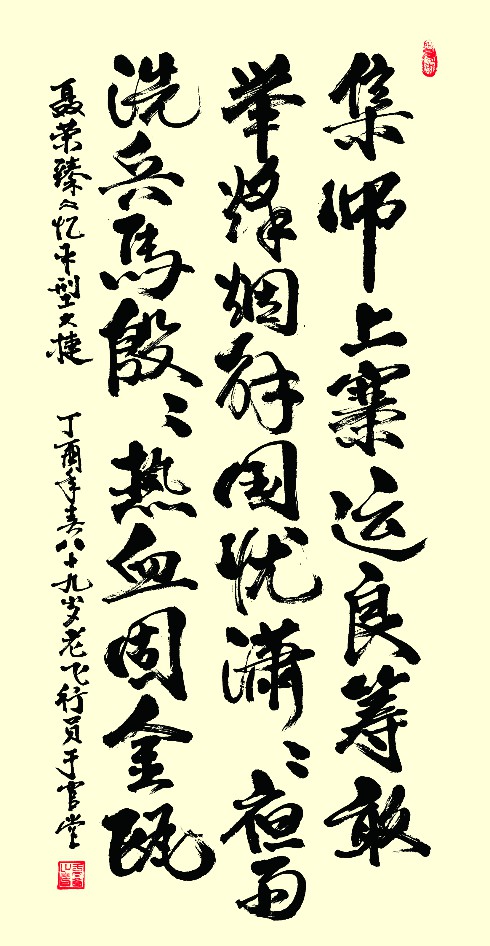 集师上寨运良筹敢
举烽烟解国忧潇〻夜雨
洗兵馬殷〻热血固金瓯
聂荣臻〻忆平型大捷 丁酉年春八十九岁老飞行员于官堂